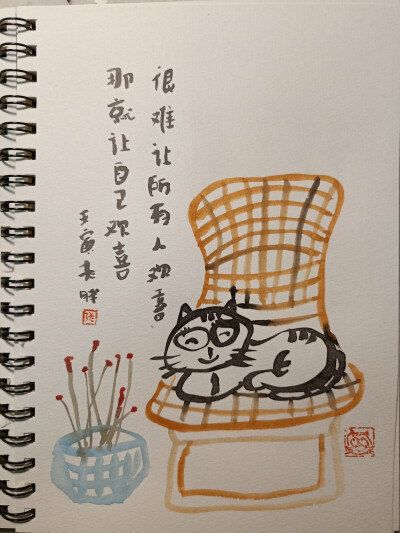 很难让所有人欢喜
那就让自己欢喜
壬寅